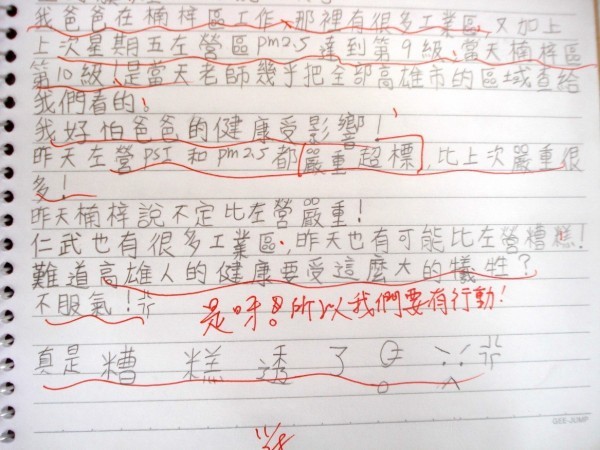 我爸爸在楠梓區工作、那裡有很多工業區,又加上
上次星期五左營區pm2.5 達到第9級、當天楠梓區
第10級!是當天老師幾乎把全部高雄市的區域查給
我們看的。
我好怕爸爸的健康受影響!
昨天左營psI 和pm2.5都嚴重超標,比上次嚴重很
多!
昨天楠梓說不定比左營嚴重!
仁武也有很多工業區,昨天也有可能比左營糟糕!
難道高雄人的健康要受這麼大的犧牲?
不服氣!
是呀!所以我們要有行動!
真是糟糕透了
GEE-JUMP